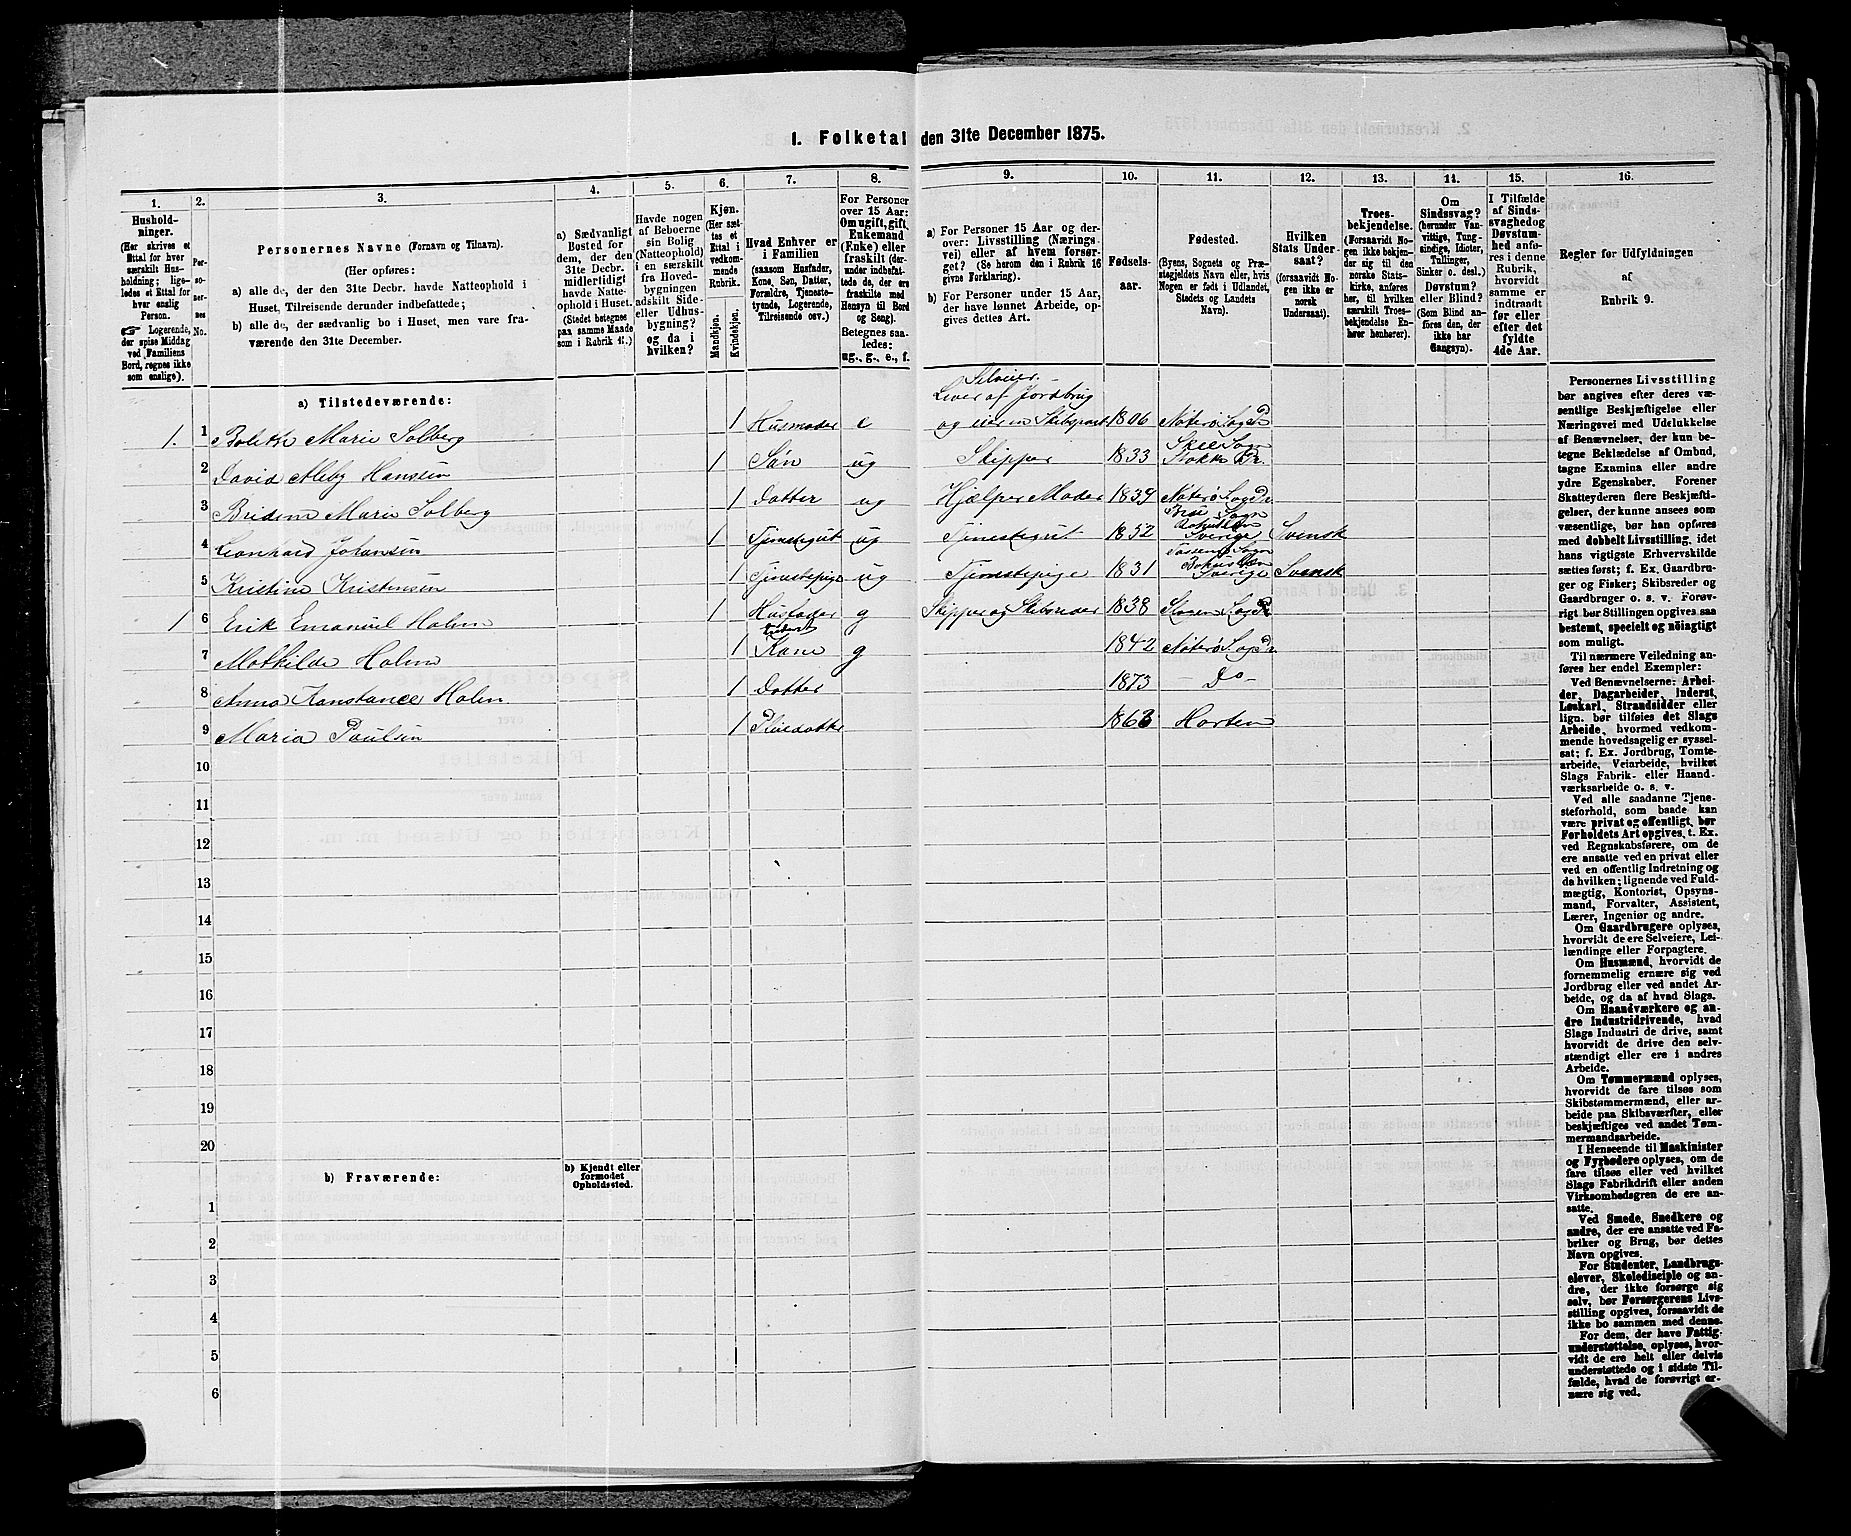 1. Folketal den 31te December 1875.
1. 2. 3. 4. 5. 6. 7. 8. 9. 10. 11. 12. 13. 14. 15. 16.
Hushold-
ninger.
(Her skrives et
Ettal for hver
særskilt Hus-
holdning; lige-
ledes et Ettal for
hver enslig
Person.
☞ Logerende,
der spise Middag
ved Familiens
Bord, regnes ikke
som enslige).
Per-
so-
ner-
nes
No.
Personernes Navne (Fornavn og Tilnavn).
(Her opføres:
a) alle de, der den 31te Decbr. havde Natteophold i
Huset, Tilreisende derunder indbefattede;
b) alle de, der sædvanlig bo i Huset, men vare fra-
værende den 31te December.
a) Sædvanligt
Bosted for
dem, der den
31te Decbr.
midlertidigt
havde Natte-
ophold i Huset.
(Stedet betegnes
paa samme Maade
som i Rubrik 11.)
Havde nogen
af Beboerne
sin Bolig
(Natteophold)
i en særskilt
fra Hoved-
bygningen
adskilt Side-
eller Udhus-
bygning?
og da i
hvilken?
Kjøn.
(Her sæt-
tes et
Ettal i
vedkom-
mende
Rubrik.
Mandkjøn.
Kvindekjøn.
Hvad Enhver er
i Familien
(saasom Husfader,
Kone, Søn, Datter,
Forældre, Tjeneste-
tyende, Logerende,
Tilreisende osv.)
For Personer
over 15 Aar:
Om ugift, gift,
Enkemand
(Enke) eller
fraskilt (der-
under indbefat-
tede de, der ere
fraskilte med
Hensyn til Bord
og Seng).
Betegnes saa-
ledes:
ug., g., e., f.
a) For Personer 15 Aar og der-
over: Livsstilling (Nærings-
vei) eller af hvem forsør-
get? (Se herom den i Rubrik 16
givne Forklaring).
b) For Personer under 15 Aar,
der have lønnet Arbeide, op-
gives dettes Art.
Fødsels-
aar.
Fødested.
(Byens, Sognets og Præ-
stegjeldets Navn eller, hvis
Nogen er født i Udlandet,
Stedets og Landets
Navn).
Hvilken
Stats Under-
saat?
(forsaavidt No-
gen ikke er
norsk
Undersaat).
Troes-
bekjendelse.
(Forsaavidt No-
gen ikke bekjen-
der sig til den
norske Stats-
kirke, anføres
her, til hvilken
særskilt Troes-
bekjendelse En-
hver henhører).
Om
Sindssvag?
(herunder Van-
vittige, Tung-
sindige, Idioter,
Tullinger,
Sinker o. desl.)
Døvstum?
eller Blind?
(Som Blind an-
føres den, der
ikke har
Gangsyn).
I Tilfælde
af Sinds-
svaghed og
Døvstum-
hed anfø-
res i denne
Rubrik,
hvorvidt
samme er
indtraadt
før eller
efter det
fyldte
4de Aar.
Regler for Udfyldningen
af
Rubrik 9.
a) Tilstedeværende:
1. 1 Bolette Marie Solberg 1 Husmoder e Selveier. Lever af Jordbrug og eier en Skibspart 1806 Nøterø Sogn Pr
2 David Aleby Hansen 1 Søn ug Skipper 1833 Skee Sogn Stokke Pr.
3 Maria Solberg 1 Datter ug Hjælper Moder 1839 Nøterø Sogn Pr
4 Leonhard Johansen 1 Tjenestegut ug Tjenestegut 1852 Sogn Sverige Svensk
5 Kristine Kristensen 1 Tjenestepige ug Tjenestepige 1831 Sogn Sverige Svensk
1 6 Erik Emanuel Holm 1 Husfader g Skipper og Skibsreder 1838 Sogn Pr
7 Mathilde Holm 1 Kone g 1842 Nøterø Sogn Pr.
8 Anna Konstance Holm 1 Datter 1873 – Do –
9 Maria Paulsen 1 Pleiedatter 1863 Horten
10
11
12
13
14
15
16
17
18
19
20
b) Fraværende:
b) Kjendt eller
formodet
Opholdssted.
1
2
3
4
5
6
Personernes Livsstilling
bør angives efter deres væ-
sentlige Beskjæftigelse eller
Næringsvei med Udelukkelse
af Benævnelser, der kun be-
tegne Beklædelse af Ombud,
tagne Examina eller andre
ydre Egenskaber. Forener
Skatteyderen flere Beskjæfti-
gelser, der kunne ansees som
væsentlige, bør han opføres
med dobbelt Livsstilling, idet
hans vigtigste Erhvervskilde
sættes først; f. Ex. Gaardbru-
ger og Fisker; Skibsreder og
Gaardbruger o. s. v. Forøv-
rigt bør Stillingen opgives saa
bestemt, specielt og nöiagtigt
som muligt.
Til nærmere Veiledning an-
føres her endel Exempler:
Ved Benævnelserne: Arbei-
der, Dagarbeider, Inderst,
Løskarl, Strandsidder eller
lign. bør tilføies det Slags
Arbeide, hvormed vedkom-
mende hovedsagelig er syssel-
sat; f. Ex. Jordbrug, Tomte-
arbeide, Veiarbeide, hvilket
Slags Fabrik- eller Haand-
værksarbeide o. s. v.
Ved alle saadanne Tjene-
steforhold, som baade kan
være privat og offentligt, bør
Forholdets Art opgives, t. Ex.
ved Regnskabsførere, om de
ere ansatte ved en privat eller
ved en offentlig Indretning og
da hvilken; lignende ved Fuld-
mægtig, Kontorist, Opsyns-
mand, Forvalter, Assistent,
Lærer, Ingeniør og andre.
Om Gaardbrugere oplyses,
hvorvidt de ere Selveiere, Lei-
lændinge eller Forpagtere.
Om Husmænd, hvorvidt de
fornemmelig ernære sig ved
Jordbrug eller ved andet Ar-
beide, og da af hvad Slags.
Om Haandværkere og an-
dre Industridrivende, hvad
Slags Industri de drive, samt
hvorvidt de drive den selv-
stændigt eller ere i andres
Arbeide.
Om Tømmermænd oplyses,
hvorvidt de fare tilsøs som
Skibstømmermænd, eller ar-
beide paa Skibsværfter, eller
beskjæftiges ved andet Tøm-
mermandsarbeide.
I Henseende til Maskinister
og Fyrbødere oplyses, om de
fare tilsøs eller ved hvilket
Slags Fabrikdrift eller anden
Virksomhedsgren de ere an-
satte.
Ved Smede, Snedkere og
andre, der ere ansatte ved Fa-
briker og Brug, bør dettes
Navn opgives.
For Studenter, Landbrugs-
elever, Skoledisciple og an-
dre, der ikke forsørge sig
selv, bør Forsørgerens Livs-
stilling opgives, forsaavidt de
ikke bo sammen med denne.
For dem, der have Fattig-
understøttelse, oplyses, hvor-
vidt de ere helt eller delvis
understøttede og i sidste Til-
fælde, hvad de forøvrigt er-
nære sig ved.